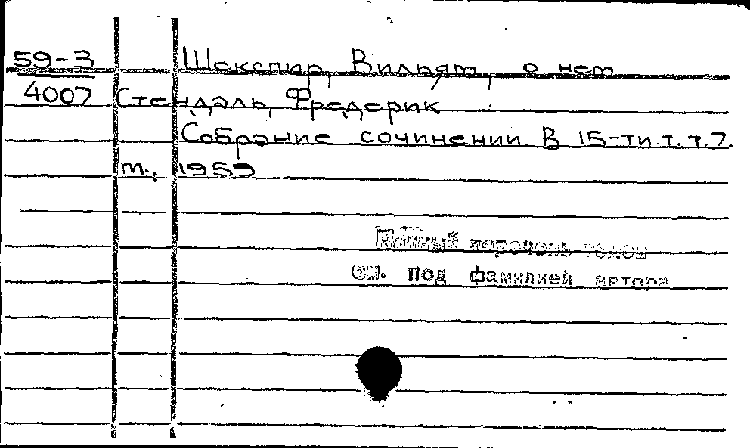 59-3 Шекспир, Вильям, о нем
4007 Стендаль, Фредерик
Собрание сочинений. В 15-ти т. т. 7.
М., 1959
Полный перечень томов
см. под фамилией автора